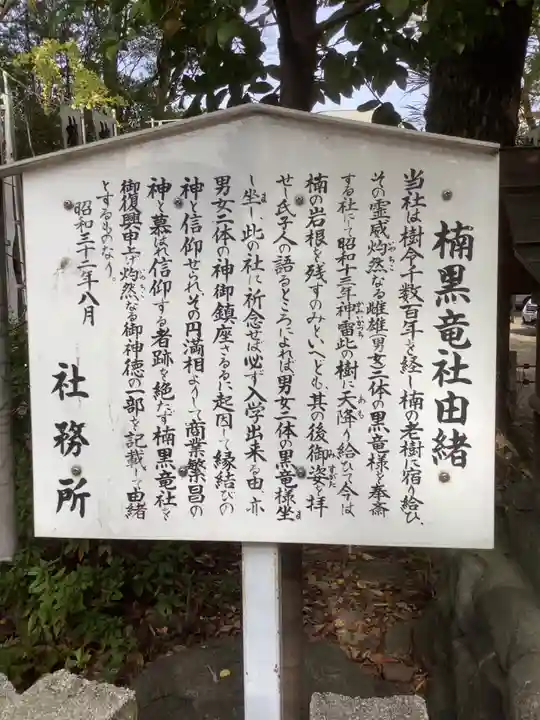 楠黒竜社由緒
当社は樹令千数百年を経し楠の老樹に宿り給ひ、
その霊威灼然なる雌雄(男女)二体の黒竜様を奉斎
する社にして昭和十三年神雷此の樹に天降り給ひて今は
楠の岩根を残すのみといへども、其の後御姿を拝
せし氏子人の語るところによれば男女二体の黒竜様坐
し坐し、此の社に祈念せば必ず入学出来る由、亦
男女二体の神御鎮座さるるに起因して縁結びの
神と信仰せられ、その円満相よりして商業繁昌の
神と慕はれ信仰する者跡を絶たず楠黒竜社を
御復興申上げ灼然なる御神徳の一部を記載して由緒
とするものなり。
昭和三十二年八月
社務所